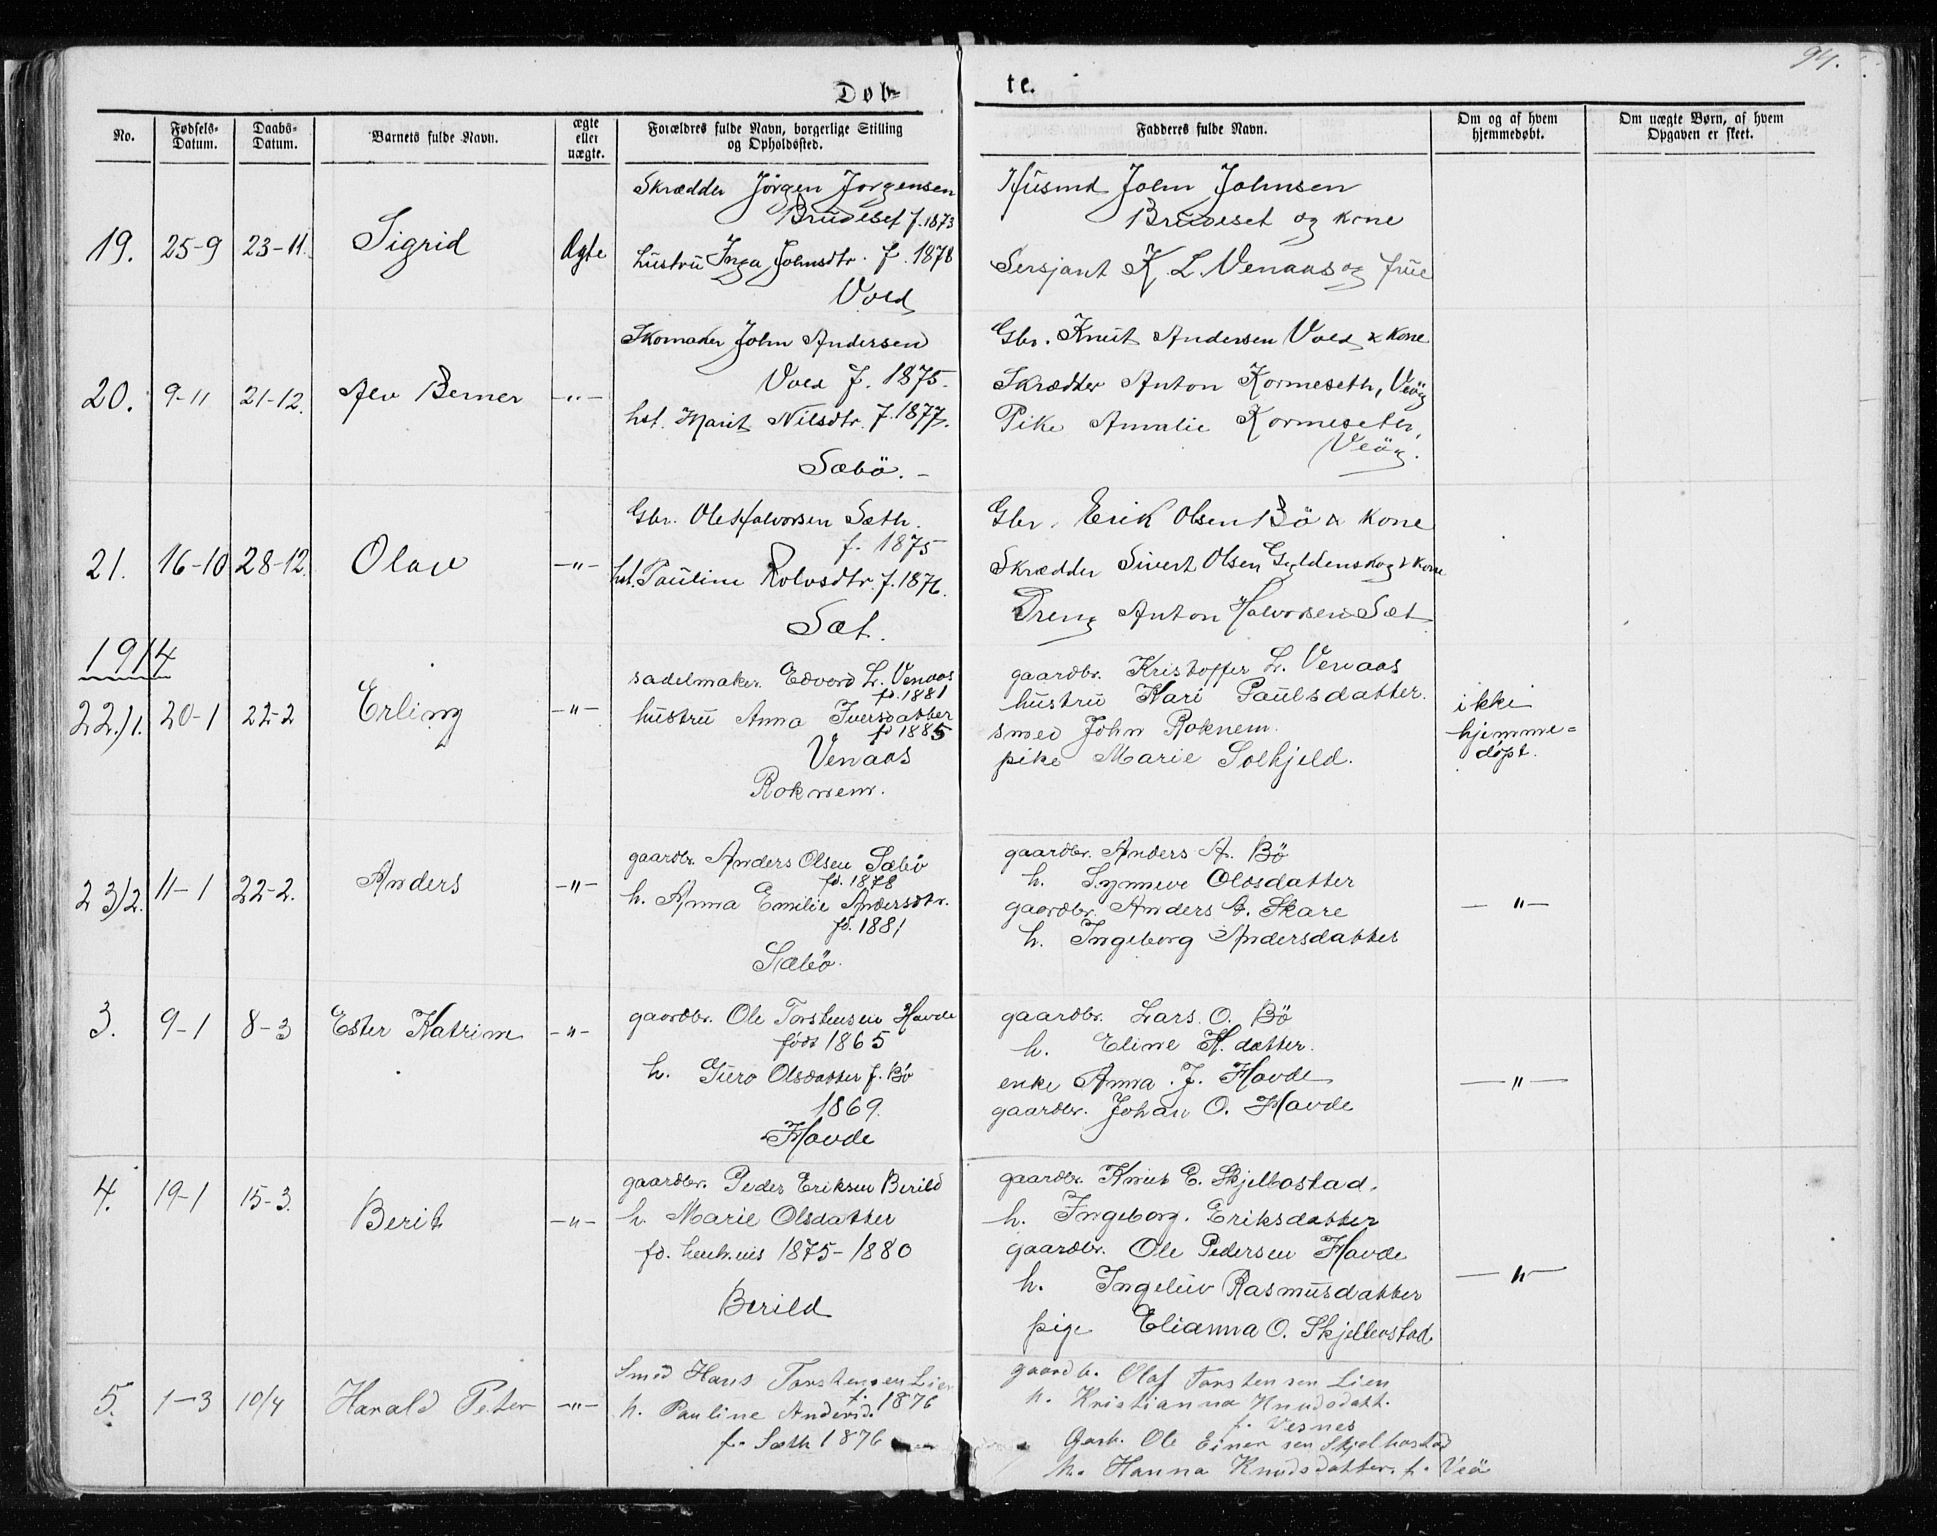 94.
Døb-
te.
No.
Fødsels-
Datum.
Daabs-
Datum.
Barnets fulde Navn.
ægte
eller
uægte.
Forældres fulde Navn, borgerlige Stilling
og Opholdssted.
Fadderes fulde Navn.
Om og af hvem
hjemmedøbt.
Om uægte Børn, af hvem
Opgaven er skeet.
19.
25-9
23-11.
Sigrid
Ægte
Skrædder Jörgen Jorgensen
Brudeset f. 1873
hustru Inga Johnsdtr. f. 1878
Vold
Husmd John Johnsen
Brudeset og kone
Sersjant K. L. Venaas og frue
20.
9-11
21-12.
Alv Berner
-"-
Skomader John Andersen
Vold f. 1875.
hst. Marit Nilsdtr. f. 1877.
Sæbö. -
Gbr. Knut Andersen Vold & kone
Skrædder Anton Kormeseth, Veöy
Pike Amalie Kormeseth,
Veöy.
21.
16-10
28-12.
Olav
-"-
Gbr. Ole Halvorsen Sæth.
f. 1875
hst. Pauline Rolvsdtr. f. 1876.
Sæt.
Gbr. Erik Olsen Bö & kone
Skrædder Sivert Olsen Gyldenskog & kone
Dreng Anton Halvorsen Sæt
1914
22./1.
20-1
22-2
Erling
-"-
sadelmaker. Edvard L. Venaas
fd. 1881
hustru Anna Iversdatter
fd 1885
Venaas
Roknem.
gaardbr. Kristoffer L. Venaas
hustru Kari Paulsdatter.
smed John Roknem.
pike Marie Solhjeld.
ikke
hjemme=
døpt.
23/2.
11-1
22-2.
Anders
-"-
gaardbr. Anders Olsen Sæbö
fd. 1878
h. Anna Emilie Andersdtr.
fd. 1881
Sæbö.
gaardbr. Anders A. Bö
h. Synneve Olosdatter
gaardbr. Anders A. Skare
h. Ingeborg Andersdatter
-"-
3.
9-1
8-3
Ester Katrine
-"-
gaardbr. Ole Torstensen Havde
født 1865
h. Guro Olsdatter f. Bö
1869.
Havde
gaardbr. Lars. O. Bö
h. Eline H. datter.
enke Anna. J. Havde
gaardbr. Johan O. Havde
-"-
4.
19-1
15-3.
Berit
-"-
gaardbr. Peder Eriksen Berild
h. Marie Olsdatter
fd. henh.vis 1875-1880
Berild
gaardbr. Knut E. Skjelbostad.
h. Ingeborg. Eriksdatter
gaardbr. Ole Pedersen Havde
h. Ingeluv Rasmusdatter
pige Elianna O. Skjelbostad
-"-
5.
1-3
10/4
Harald Peter
-"-
Smed Hans Torstensen Lien
f. 1876
h. Pauline Andersd.
f. Sæth 1876
gaardb. Olaf Torstensen Lien
h. Kristianna Knudsdatt.
f. Vesnes
Garb. Ole Einersen Skjelbostad
h. Hanna Knudsdatter. f. Veö